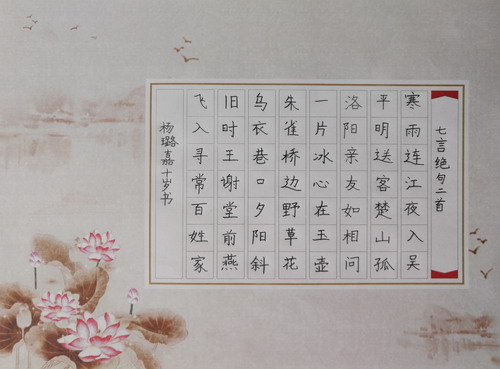 七言绝句二首
寒雨连江夜入吴
平明送客楚山孤
洛阳亲友如相问
一片冰心在玉壶
朱雀桥边野草花
乌衣巷口夕阳斜
旧时王谢堂前燕
飞入寻常百姓家
杨璐嘉十岁书